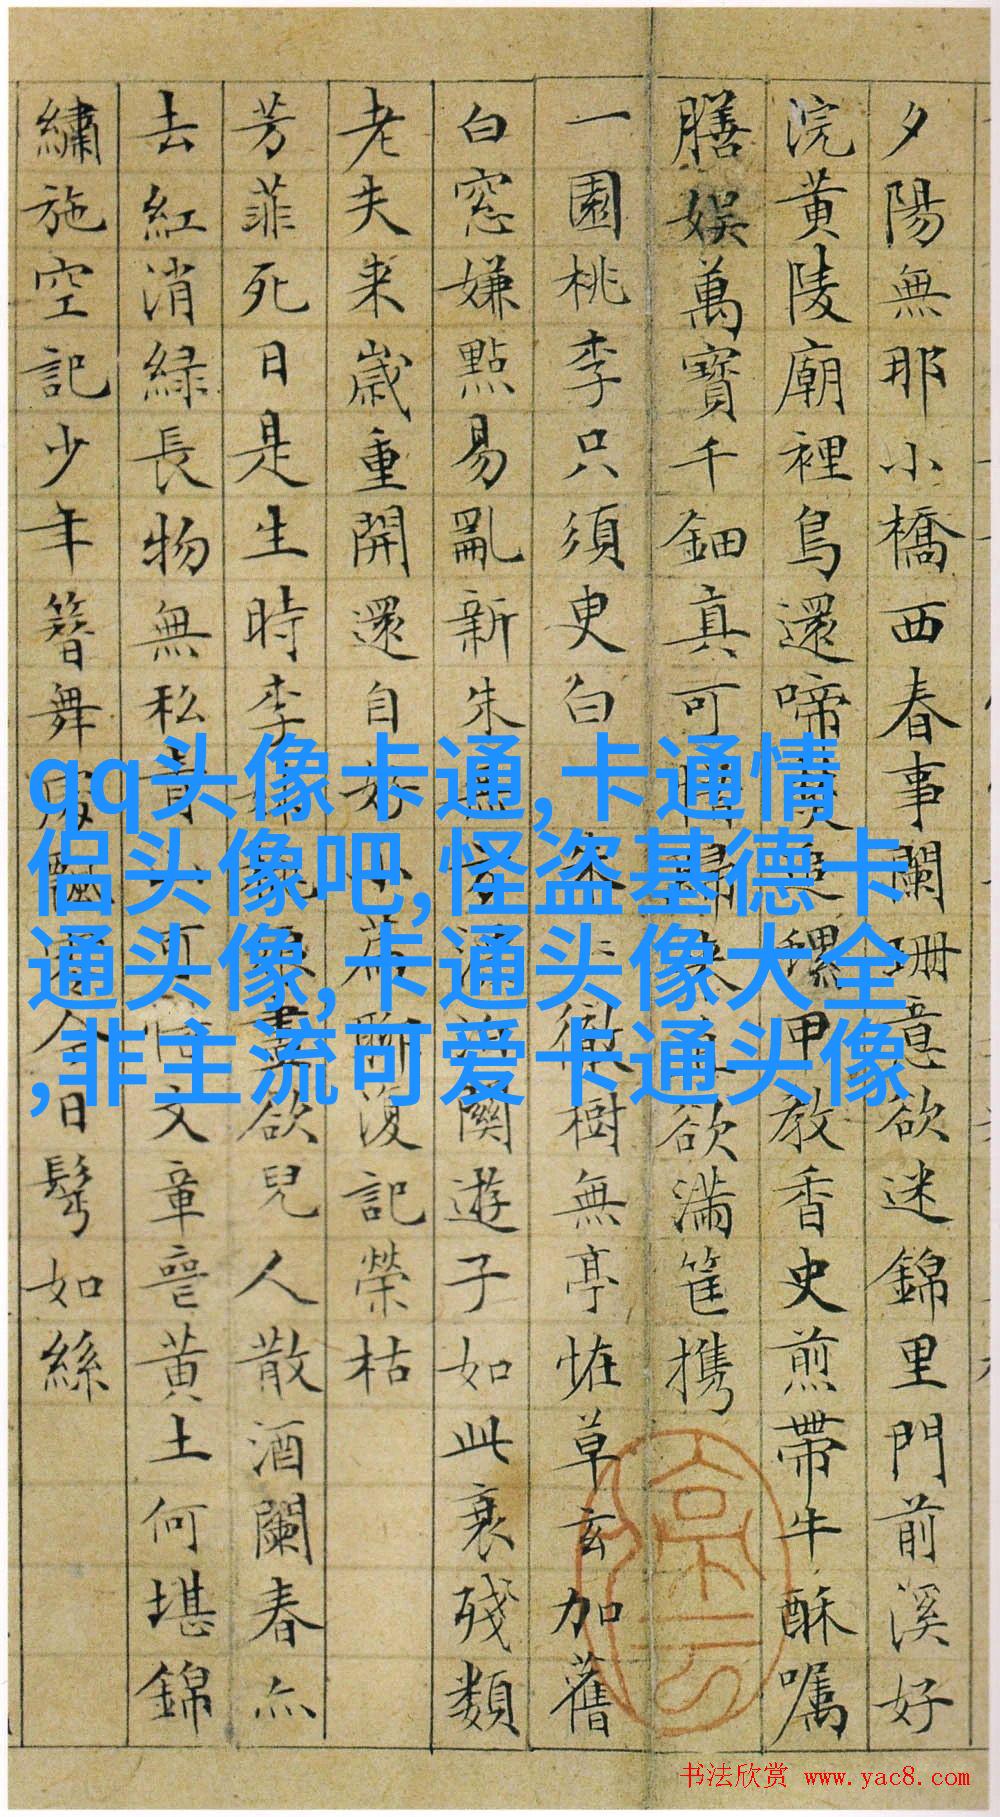 夕陽無那小橋西春事闌珊意欲迷錦里門前溪好
浣黃陵廟裡鳥還啼焚追螺甲教香史煎帶牛酥囑
膳娛萬寶千鈿真可惜歸來直欲滿筐攜
一園桃李只須臾白朱徹樹無亭恠草玄加舊
白窓嫌點易亂新朱無方漂泊關遊子如此衰殘類
老夫來歲重開還自好小篇聊復記榮枯
芳菲死日是生時李妹桃娘盡欲兒人散酒闌春亦
去紅消綠長物無私青山可惜文章喪黃土何堪錦
繡施空記少年簪舞處飄零今日鬢如絲
qq头像卡通,卡通情
侣头像吧,怪盗基德卡
通头像,卡通头像大全
,非主流可爱卡通头像
书法欣赏 www.yac8.com